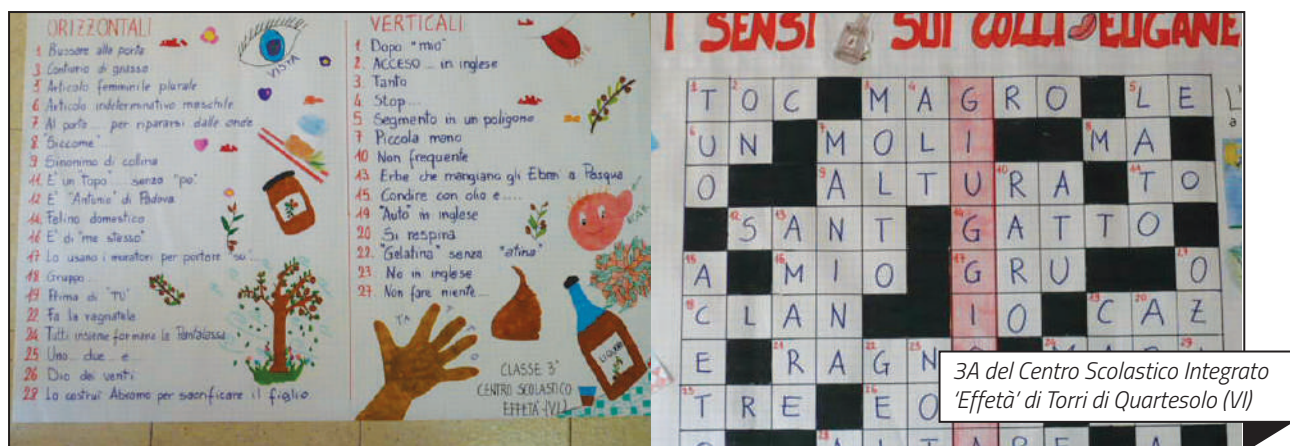 ORIZZONTALI
1 Bussare alla porta
3 Contrario di grasso
5 Articolo femminile plurale
6 Articolo indeterminativo maschile
7 Al porto ... per ripararsi dalle onde
8 Siccome
9 Sinonimo di collina
11 E' un "Topo" ..... senza "po"
12 E' "Antonio" di Padova
14 Felino domestico
16 E' di "me stesso"
17 Lo usano i muratori per portare "su"...
18 Gruppo...
19 Prima di "TÙ"
22 Fa la ragnatela
24 Tutti insieme formano la Pantalassa
25 Uno... due... e...
26 Dio dei venti
28 Lo costruì Abramo per sacrificare il figlio
VISTA
VERTICALI
1. Dopo "mio"
2. ACCESO ... in inglese
3. Tanto
4. Stop...
5. Segmento in un poligono
7 Piccola mano
10 Non frequente
13. Erbe che mangiano gli Ebrei a Pasqua
15. Condire con olio e.....
19 "Auto" in inglese
20 Si respira
22. "Gelatina" senza "atina"
23. No in inglese
27. Non fare niente...
CLASSE 3°
CENTRO SCOLASTICO
EFFETÀ (VI)
I SENSI SUI COLLI EUGANE
1 T 2 O C 3 M 4 A G R O 5 L E
6 U N 7 M O L I 8 M A
O 9 A L T U 10 R A 11 T O
12 S 13 A N T 14 G A T T O
15 A 16 M I O 17 G R U 27 O
18 C L A N I O 19 C 20 A Z
E 21 R A 22 G 23 N
25 T R E 26 E O
3A del Centro Scolastico Integrato
'Effetà' di Torri di Quartesolo (VI)